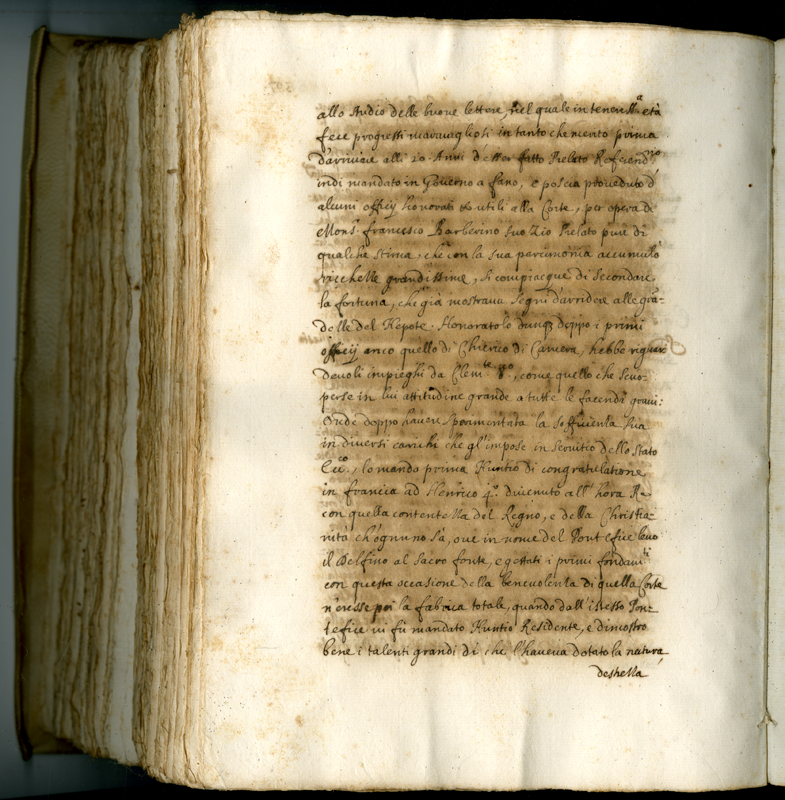 allo studio delle buone lettere, nel quale in teneriss.ª età
fece progressi maravigliosi in tanto che meritò prima
d'arrivare alli 20. Anni d'esser fatto Prelato Referend.rio
indi mandato in Governo a Fano, e poscia proveduto d'
alcuni officij honorati et utili alla Corte, per opera di
Mons.r Francesco Barberino suo Zio Prelato pure di
qualche stima, che con la sua parsimonia accumulò
ricchezze grandissime, si compiacque di secondare
la fortuna, che già mostrava segni d'arridere alle grã-
dezze del Nepote. Honoratolo dunq; doppo i primi
officij anco quello di Chierico di Camera, hebbe riguar-
devoli impieghi da Clem.te 8.º, come quello che scuo-
perse in lui attitudine grande a tutte le facende gravi:
Onde doppo havere sperimentata la sofficienza sua
in diversi carichi che gl'impose in servitio dello Stato
Ecc.co, lo mandò prima Nuntio di congratulatione
in Francia ad Henrico 4.º divenuto all'hora Re
con quella contentezza del Regno, e della Christia-
nità ch'ognuno sà, ove in nome del Pontefice levò
il Delfino al Sacro fonte, e gettati i primi fondam.ti
con questa occasione della benevolenza di quella Corte
n'eresse poi la fabrica totale, quando dall'istesso Pon-
tefice vi fù mandato Nuntio Residente, e dimostrò
bene i talenti grandi di che l'haveva dotato la natura
destrezza